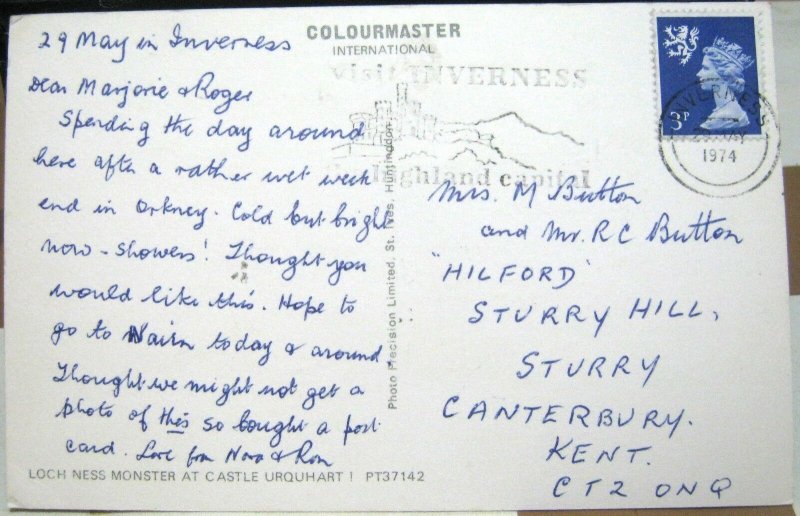 29 May in Inverness
Dear Marjorie & Roger
Spending the day around
here after a rather wet week
end in Orkney. Cold but bright
now - showers! Thought you
would like this. Hope to
go to Nairn today & around
Thought we might not get a
photo of this so bought a post
card. Love from Nora & Ron
LOCH NESS MONSTER AT CASTLE URQUHART ! PT37142
COLOURMASTER
INTERNATIONAL
Photo Precision Limited, St. Ives, Huntingdon
visit INVERNESS
highland capital
3P
INVERNESS
MAY
1974
Mrs. M Button
and Mr. R C Button
"HILFORD"
STURRY HILL,
STURRY
CANTERBURY.
KENT.
CT2 0NQ